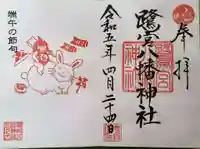 奉拝
鷺宮八幡神社
令和五年四月二十四日
端午の節句